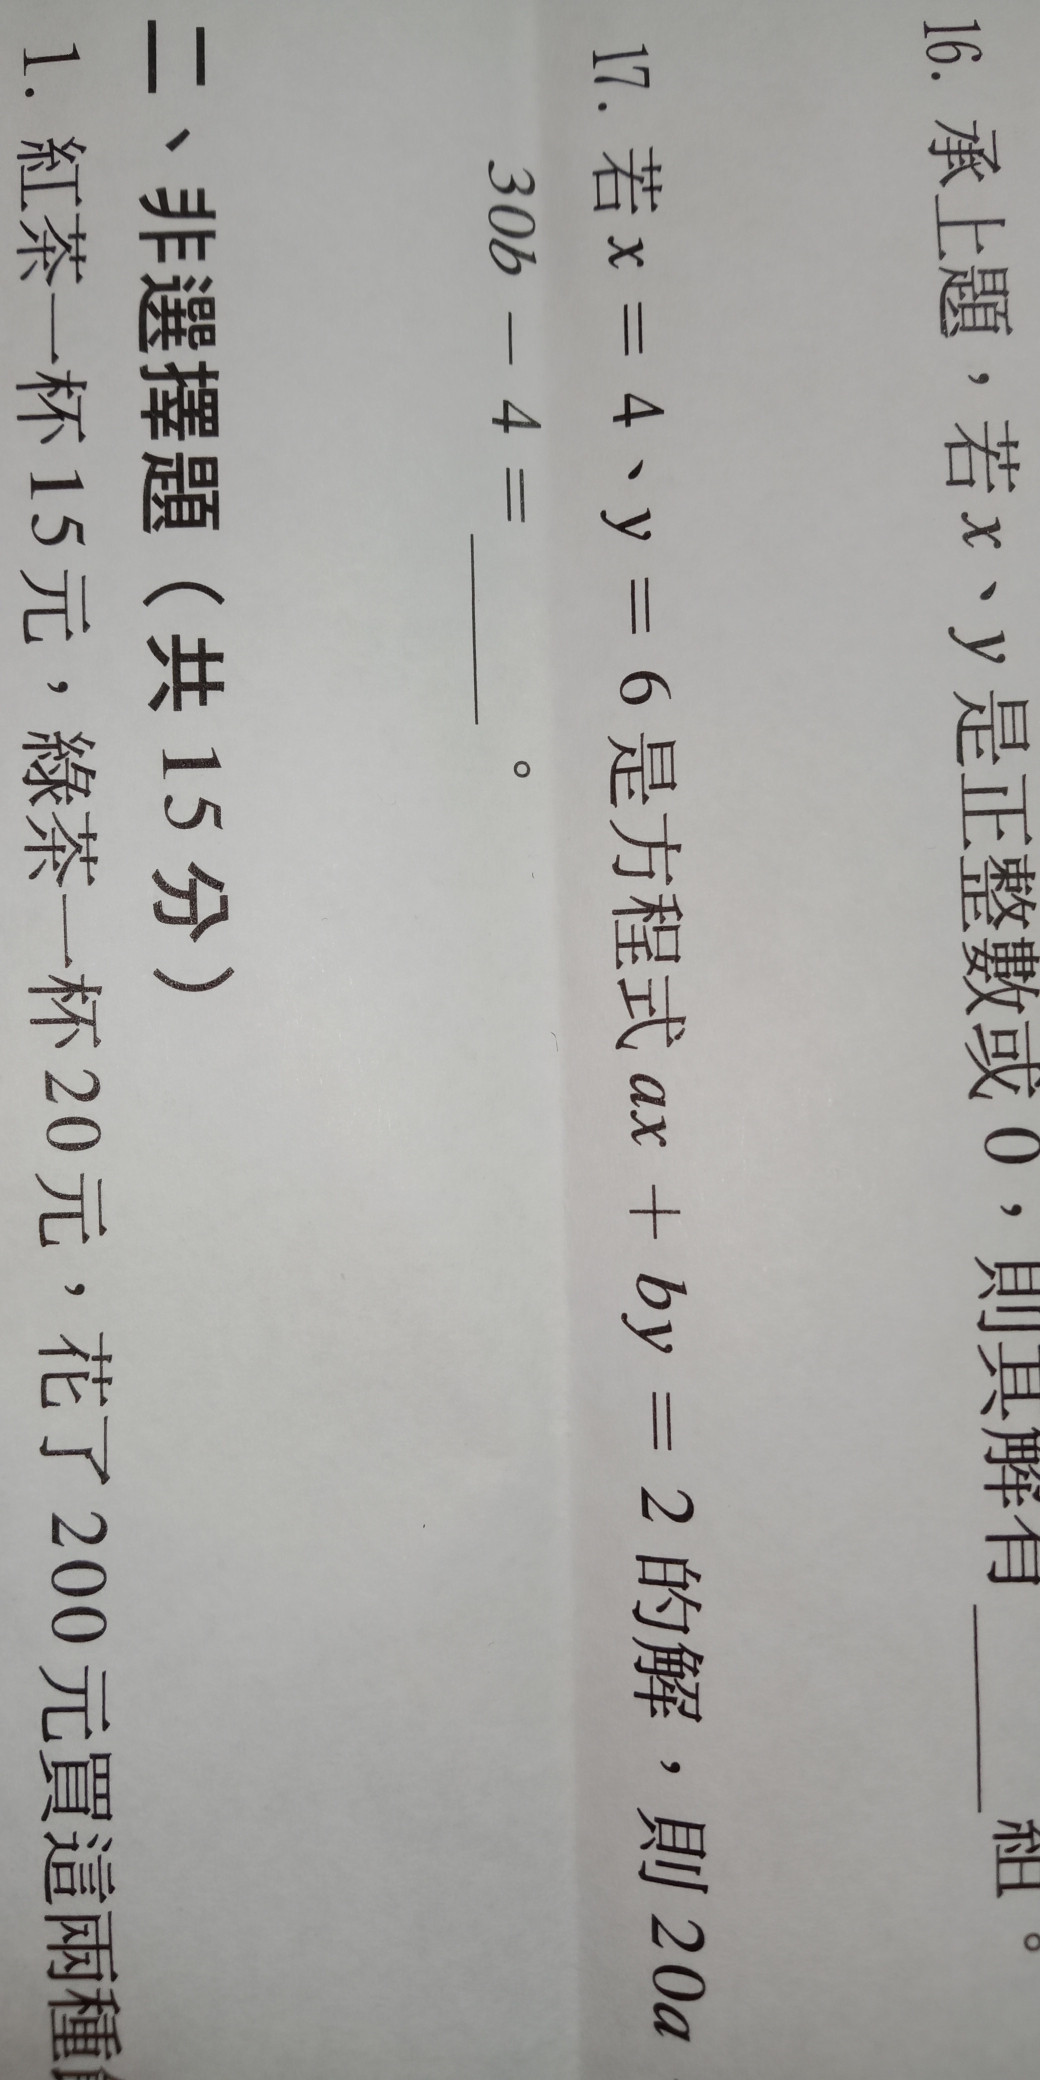 16. 承上題，若 x、y 是正整數或 0，則其解有 ______ 組。
17. 若 x = 4、y = 6 是方程式 ax + by = 2 的解，則 20a
30b − 4 = ______ 。
二、非選擇題（共 15 分）
1. 紅茶一杯 15 元，綠茶一杯 20 元，花了 200 元買這兩種